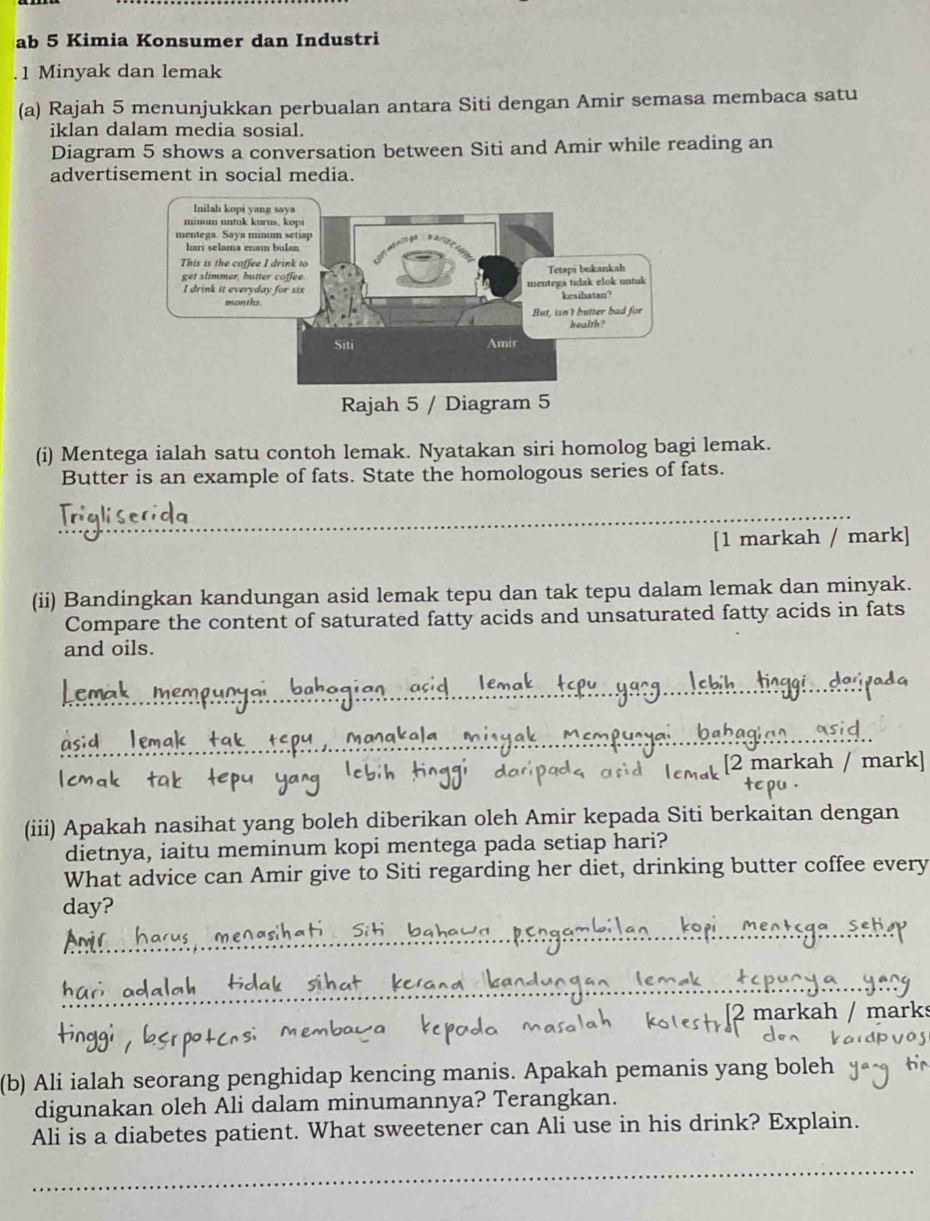 ab 5 Kimia Konsumer dan Industri
.1 Minyak dan lemak
(a) Rajah 5 menunjukkan perbualan antara Siti dengan Amir semasa membaca satu
iklan dalam media sosial.
Diagram 5 shows a conversation between Siti and Amir while reading an
advertisement in social media.
Inilah kopi yang saya
minum untuk kurus, kopi
mentega. Saya minum setiap
hari selama enam bulan.
This is the coffee I drink to
get slimmer, butter coffee.
I drink it everyday for six
months.
Tetapi bukankah
mentega tidak elok untuk
kesihatan?
But, isn't butter bad for
health?
Siti
Amir
Rajah 5 / Diagram 5
(i) Mentega ialah satu contoh lemak. Nyatakan siri homolog bagi lemak.
Butter is an example of fats. State the homologous series of fats.
Trigliserida
[1 markah / mark]
(ii) Bandingkan kandungan asid lemak tepu dan tak tepu dalam lemak dan minyak.
Compare the content of saturated fatty acids and unsaturated fatty acids in fats
and oils.
Lemak mempunyai bahagian acid lemak tepu yang lebih tinggi daripada
asid lemak tak tepu, manakala minyak mempunyai bahagian asid
lemak tak tepu yang lebih tinggi daripada asid lemak
[2 markah / mark]
tepu.
(iii) Apakah nasihat yang boleh diberikan oleh Amir kepada Siti berkaitan dengan
dietnya, iaitu meminum kopi mentega pada setiap hari?
What advice can Amir give to Siti regarding her diet, drinking butter coffee every
day?
Amir harus, menasihati Siti bahawa pengambilan kopi mentega setiap
hari adalah tidak sihat kerana kandungan lemak tepunya yang
tinggi, berpotensi membawa kepada masalah kolestrol
[2 markah / marks
dan kardovas
yang tin
(b) Ali ialah seorang penghidap kencing manis. Apakah pemanis yang boleh
digunakan oleh Ali dalam minumannya? Terangkan.
Ali is a diabetes patient. What sweetener can Ali use in his drink? Explain.